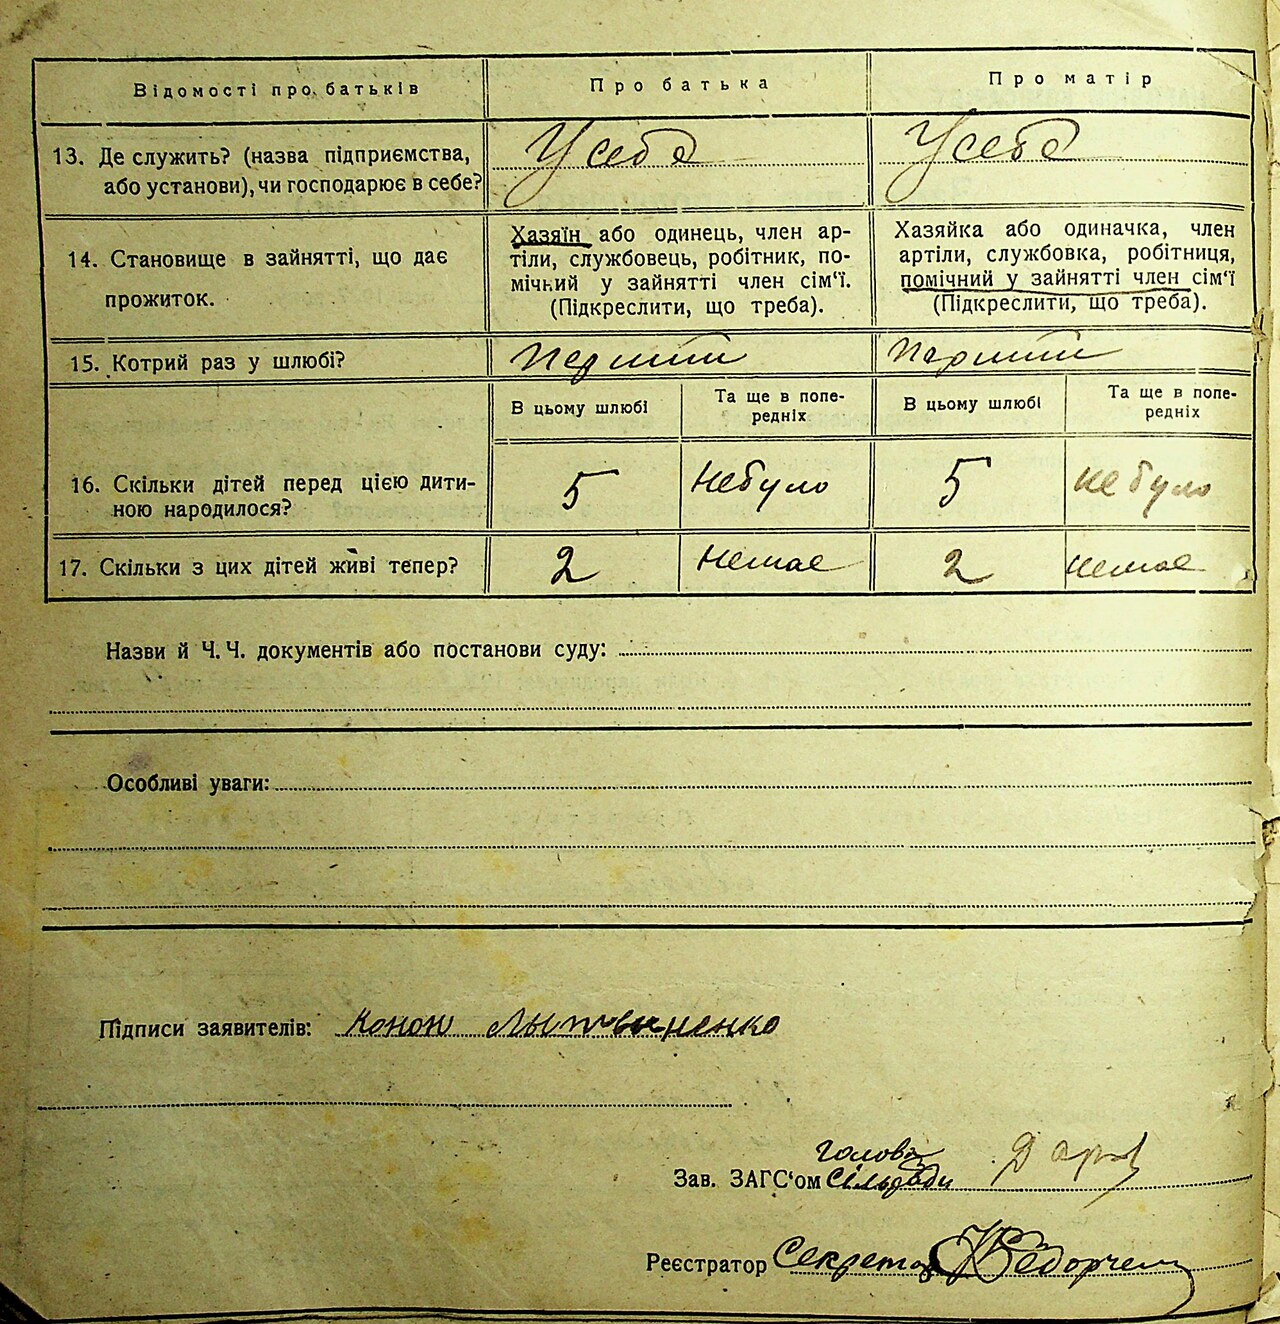 Відомості про батьків
Про батька
Про матір
13. Де служить? (назва підприємства,
або установи), чи господарює в себе?
У себе
У себе
14. Становище в зайнятті, що дає
прожиток.
Хазяїн або одинець, член ар-
тіли, службовець, робітник, по-
мічний у зайнятті член сім'ї.
(Підкреслити, що треба).
Хазяйка або одиначка, член
артіли, службовка, робітниця,
помічний у зайнятті член сім'ї
(Підкреслити, що треба).
15. Котрий раз у шлюбі?
Перший
Перший
В цьому шлюбі
Та ще в попе-
редніх
В цьому шлюбі
Та ще в попе-
редніх
16. Скільки дітей перед цією дити-
ною народилося?
5
Небуло
5
Небуло
17. Скільки з цих дітей живі тепер?
2
Немає
2
Немає
Назви й Ч. Ч. документів або постанови суду:
Особливі уваги:
Підписи заявителів: Конон Лытвыненко
голова
Зав. ЗАГС'ом Сільради
Реєстратор Секретар